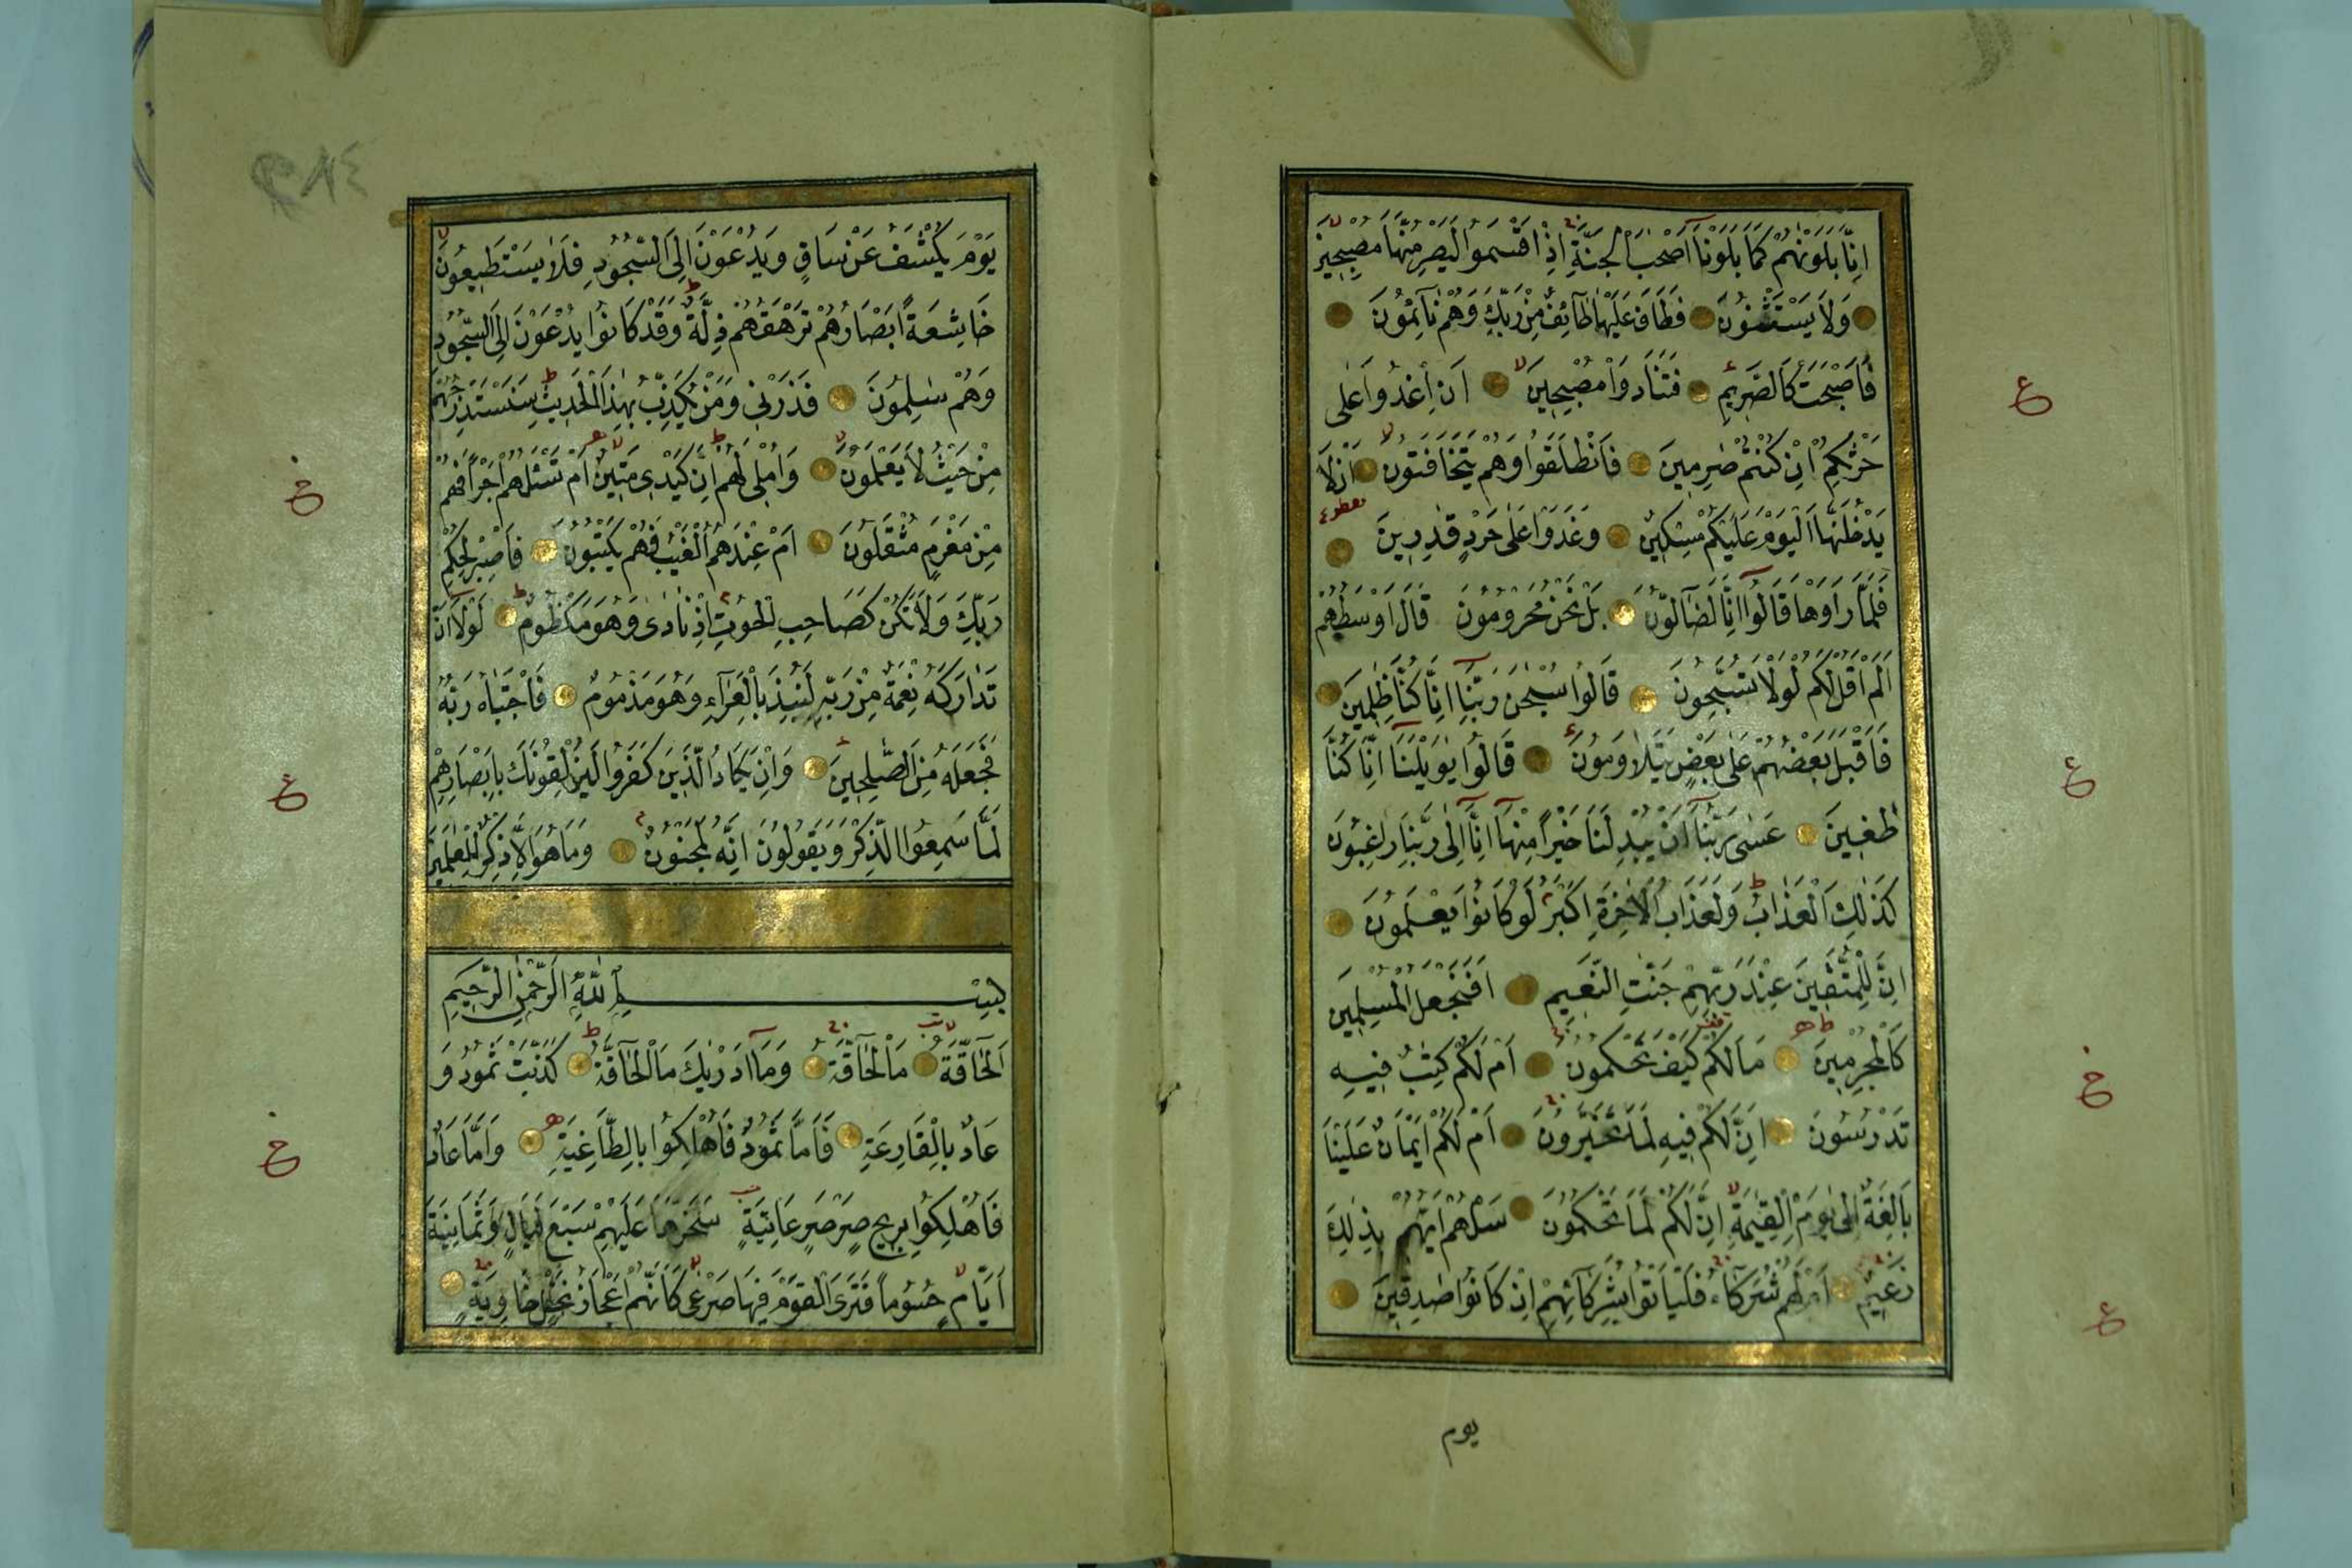 اِنَّا بَلَوْنٰهُمْ كَمَا بَلَوْنَٓا اَصْحٰبَ الْجَنَّةِ اِذْ اَقْسَمُوا لَيَصْرِمُنَّهَا مُصْبِحِينَ
وَلَا يَسْتَثْنُونَ فَطَافَ عَلَيْهَا طَٓائِفٌ مِنْ رَبِّكَ وَهُمْ نَٓائِمُونَ
فَاَصْبَحَتْ كَالصَّرِيمِ فَتَنَادَوْا مُصْبِحِينَ اَنِ اغْدُوا عَلٰى
حَرْثِكُمْ اِنْ كُنْتُمْ صٰرِمِينَ فَانْطَلَقُوا وَهُمْ يَتَخَافَتُونَ اَنْ لَا
يَدْخُلَنَّهَا الْيَوْمَ عَلَيْكُمْ مِسْكِينٌ وَغَدَوْا عَلٰى حَرْدٍ قٰدِرِينَ
فَلَمَّا رَاَوْهَا قَالُٓوا اِنَّا لَضَٓالُّونَ بَلْ نَحْنُ مَحْرُومُونَ قَالَ اَوْسَطُهُمْ
اَلَمْ اَقُلْ لَكُمْ لَوْلَا تُسَبِّحُونَ قَالُوا سُبْحٰنَ رَبِّنَٓا اِنَّا كُنَّا ظٰلِمِينَ
فَاَقْبَلَ بَعْضُهُمْ عَلٰى بَعْضٍ يَتَلَاوَمُونَ قَالُوا يٰوَيْلَنَٓا اِنَّا كُنَّا
طٰغِينَ عَسٰى رَبُّنَٓا اَنْ يُبْدِلَنَا خَيْرًا مِنْهَٓا اِنَّٓا اِلٰى رَبِّنَا رٰغِبُونَ
كَذٰلِكَ الْعَذَابُ وَلَعَذَابُ الْاٰخِرَةِ اَكْبَرُ لَوْ كَانُوا يَعْلَمُونَ
اِنَّ لِلْمُتَّقِينَ عِنْدَ رَبِّهِمْ جَنّٰتِ النَّعِيمِ اَفَنَجْعَلُ الْمُسْلِمِينَ
كَالْمُجْرِمِينَ مَا لَكُمْ كَيْفَ تَحْكُمُونَ اَمْ لَكُمْ كِتٰبٌ فِيهِ
تَدْرُسُونَ اِنَّ لَكُمْ فِيهِ لَمَا تَخَيَّرُونَ اَمْ لَكُمْ اَيْمَانٌ عَلَيْنَا
بَالِغَةٌ اِلٰى يَوْمِ الْقِيٰمَةِ اِنَّ لَكُمْ لَمَا تَحْكُمُونَ سَلْهُمْ اَيُّهُمْ بِذٰلِكَ
زَعِيمٌ اَمْ لَهُمْ شُرَكَٓاءُ فَلْيَاْتُوا بِشُرَكَٓائِهِمْ اِنْ كَانُوا صٰدِقِينَ
يوم
يَوْمَ يُكْشَفُ عَنْ سَاقٍ وَيُدْعَوْنَ اِلَى السُّجُودِ فَلَا يَسْتَطِيعُونَ
خَاشِعَةً اَبْصَارُهُمْ تَرْهَقُهُمْ ذِلَّةٌ وَقَدْ كَانُوا يُدْعَوْنَ اِلَى السُّجُودِ
وَهُمْ سٰلِمُونَ فَذَرْنِي وَمَنْ يُكَذِّبُ بِهٰذَا الْحَدِيثِ سَنَسْتَدْرِجُهُمْ
مِنْ حَيْثُ لَا يَعْلَمُونَ وَاُمْلِي لَهُمْ اِنَّ كَيْدِي مَتِينٌ اَمْ تَسْئَلُهُمْ اَجْرًا فَهُمْ
مِنْ مَغْرَمٍ مُثْقَلُونَ اَمْ عِنْدَهُمُ الْغَيْبُ فَهُمْ يَكْتُبُونَ فَاصْبِرْ لِحُكْمِ
رَبِّكَ وَلَا تَكُنْ كَصَاحِبِ الْحُوتِ اِذْ نَادٰى وَهُوَ مَكْظُومٌ لَوْلَٓا اَنْ
تَدَارَكَهُ نِعْمَةٌ مِنْ رَبِّهِ لَنُبِذَ بِالْعَرَٓاءِ وَهُوَ مَذْمُومٌ فَاجْتَبٰاهُ رَبُّهُ
فَجَعَلَهُ مِنَ الصّٰلِحِينَ وَاِنْ يَكَادُ الَّذِينَ كَفَرُوا لَيُزْلِقُونَكَ بِاَبْصَارِهِمْ
لَمَّا سَمِعُوا الذِّكْرَ وَيَقُولُونَ اِنَّهُ لَمَجْنُونٌ وَمَا هُوَ اِلَّا ذِكْرٌ لِلْعٰلَمِينَ
بِسْمِ اللّٰهِ الرَّحْمٰنِ الرَّحِيمِ
اَلْحَٓاقَّةُ مَا الْحَٓاقَّةُ وَمَٓا اَدْرٰيكَ مَا الْحَٓاقَّةُ كَذَّبَتْ ثَمُودُ وَ
عَادٌ بِالْقَارِعَةِ فَاَمَّا ثَمُودُ فَاُهْلِكُوا بِالطَّاغِيَةِ وَاَمَّا عَادٌ
فَاُهْلِكُوا بِرِيحٍ صَرْصَرٍ عَاتِيَةٍ سَخَّرَهَا عَلَيْهِمْ سَبْعَ لَيَالٍ وَثَمَانِيَةَ
اَيَّامٍ حُسُومًا فَتَرَى الْقَوْمَ فِيهَا صَرْعٰى كَاَنَّهُمْ اَعْجَازُ نَخْلٍ خَاوِيَةٍ